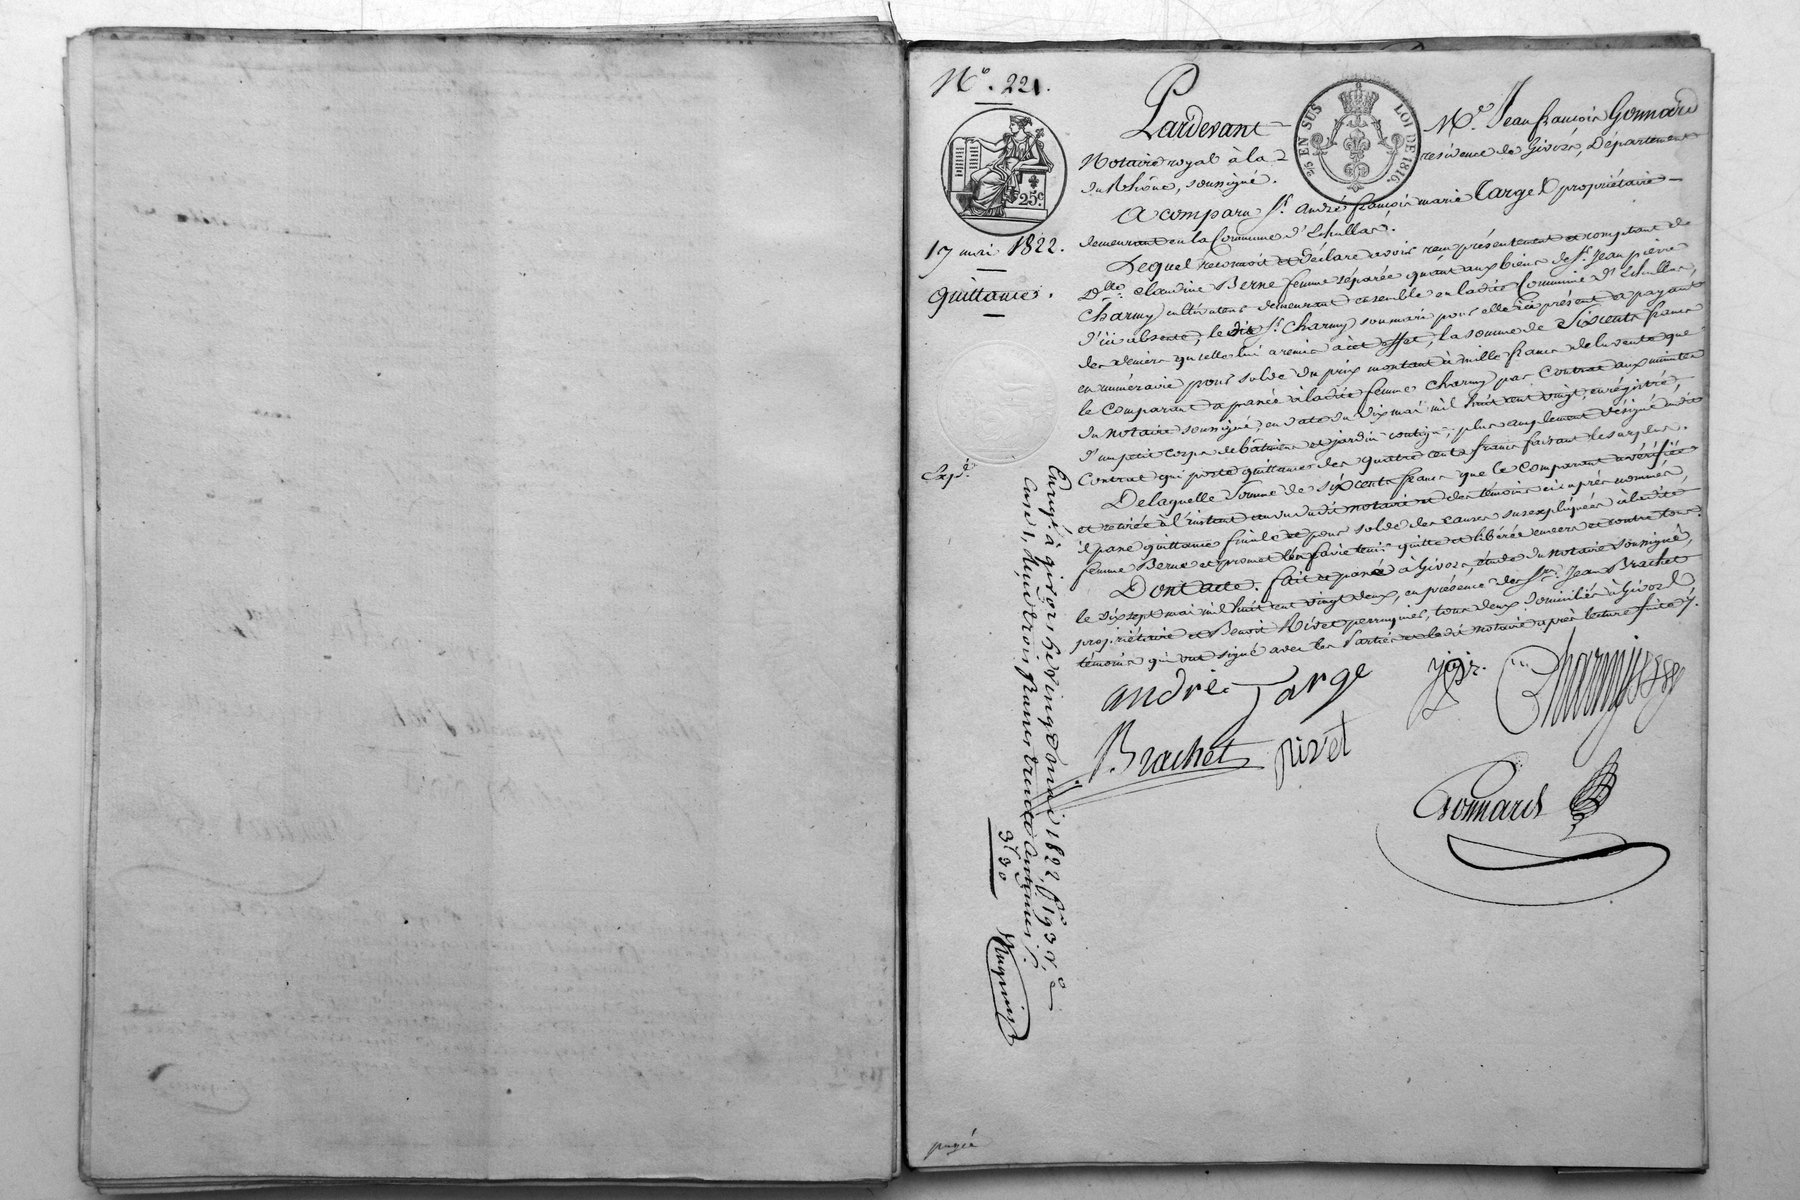 N.° 221.
25c
17 mai 1822.
Quittance.
Exp.é
2/5 EN SUS LOI DE 1816
Pardevant M.e Jean françois Gonnard
Notaire royal à la résidence de Givors, Département
du Rhône, soussigné.
A comparu S.r André françois marie Targe propriétaire
demeurant en la Commune d'Echallas.
Lequel reconnait et déclare avoir reçu présentement et comptant de
D.lle Claudine Berne femme séparée quant aux biens de S.r Jean pierre
Charmy cultivateur demeurant ensemble en ladite Commune d'Echallas,
d'ici absente, ledit S.r Charmy son mari pour elle ici présent et payant
des deniers qu'elle lui a remis à cet effet, la somme de Six cents francs
en numéraire pour solde du prix montant à mille francs de la vente que
le Comparant a passée à ladite femme Charmy par Contrat aux minutes
du notaire soussigné, en date du dix mai mil huit cent vingt, enrégistré,
d'un petit Corps de bâtiment et jardin contigu, plus amplement désigné audit
Contrat qui porte quittance des quatre cents francs faisant le surplus.
De laquelle Somme de six cents francs que le Comparant a vérifiée
et retirée à l'instant au vu dudit notaire et des témoins ci-après nommés,
il passe quittance finale et pour solde des causes susexpliquées à ladite
femme Berne et promet l'en faire tenir quitte et libérée envers et contre tous.
Dont acte. fait et passé à Givors, étude du notaire soussigné,
le dix sept mai mil huit cent vingt deux, en présence des S.rs Jean Brachet
propriétaire et Benoit Rivet perruquier, tous deux domiciliés à Givors
témoins qui ont signé avec les Parties et ledit notaire après lecture faite
andré Targe
Charmy
Brachet
rivet
Gonnard
Enreg.é à givors le vingt mai 1822, f.° 193 v.°
Case 1, Reçu trois francs trente centimes
3f 30
payée